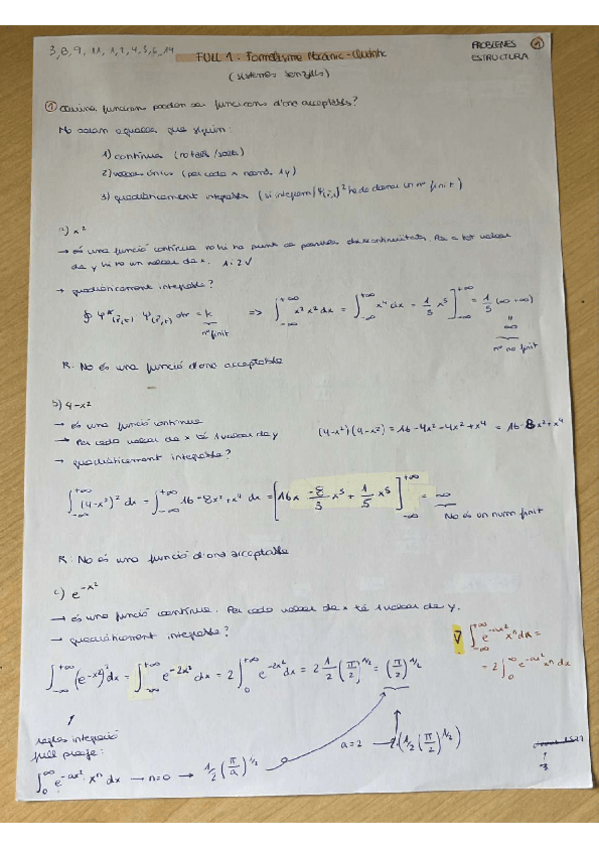 3, 8, 9, 11, 1, 2, 4, 5, 6, 14
FULL 1: Formalisme Mecànic-Quàntic
(sistemes senzills)
PROBLEMES ESTRUCTURA
1
① Quines funcions poden ser funcions d'ona acceptables?
No seran aquelles que siguin:
1) contínua (no talls/salts)
2) valor únic (per cada x només 1 y)
3) quadràticament integrables (si integrem |Ψ(r,t)|² ha de donar un nº finit)
a) x²
→ és una funció contínua no hi ha punts de possibles discontinuïtats. Per a tot valor
de y hi ha un valor de x. 1 i 2 ✓
→ quadràticament integrable?
∮ Ψ*(r,t) Ψ(r,t) dτ = k ⇒ ∫_{-∞}^{+∞} x² x² dx = ∫_{-∞}^{+∞} x⁴ dx = 1/5 x⁵ ]_{-∞}^{+∞} = 1/5 (∞-∞)
nº finit
∞
nº no finit
R: No és una funció d'ona acceptable
b) 4-x²
→ és una funció contínua
→ Per cada valor de x té 1 valor de y
(4-x²)(4-x²) = 16-4x²-4x²+x⁴ = 16-8x²+x⁴
→ quadràticament integrable?
∫_{-∞}^{+∞} (4-x²)² dx = ∫_{-∞}^{+∞} 16-8x²+x⁴ dx = [16x -8/3 x³ + 1/5 x⁵]_{-∞}^{+∞} = ∞
No és un num finit
R: No és una funció d'ona acceptable
c) e^{-x²}
→ és una funció contínua. Per cada valor de x té 1 valor de y.
→ quadràticament integrable?
∫_{-∞}^{+∞} e^{-ax²} xⁿ dx =
= 2 ∫_0^∞ e^{-ax²} xⁿ dx
∫_{-∞}^{+∞} (e^{-x²})² dx = ∫_{-∞}^{+∞} e^{-2x²} dx = 2 ∫_0^{+∞} e^{-2x²} dx = 2 1/2 (π/2)^{1/2} = (π/2)^{1/2}
regles integració
full profe:
a=2 → (1/2 (π/2)^{1/2})
∫_0^∞ e^{-ax²} xⁿ dx → n=0 → 1/2 (π/a)^{1/2}